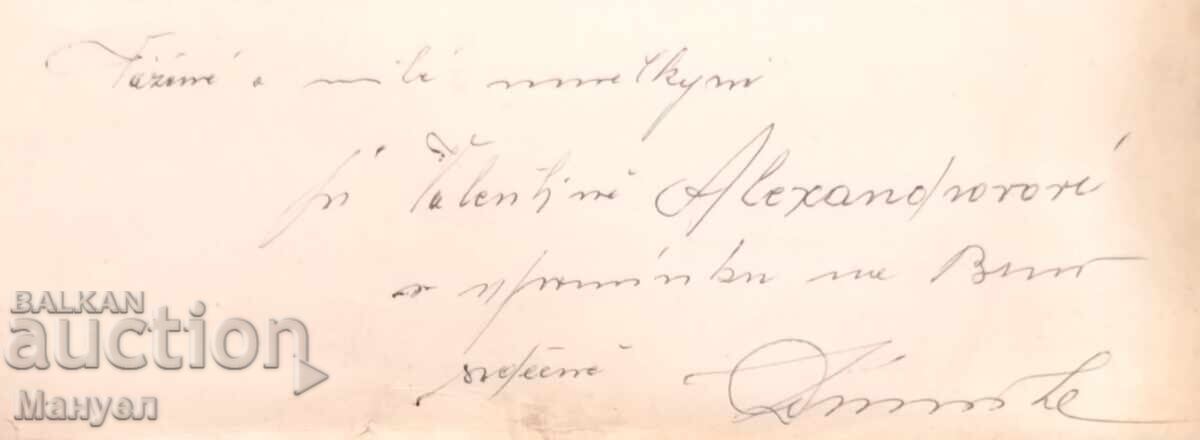 Vážené a milé umělkyni
pí Valentině Alexandrovové
v upomínku na Brno
srdečně
BALKAN
auction
Мануел